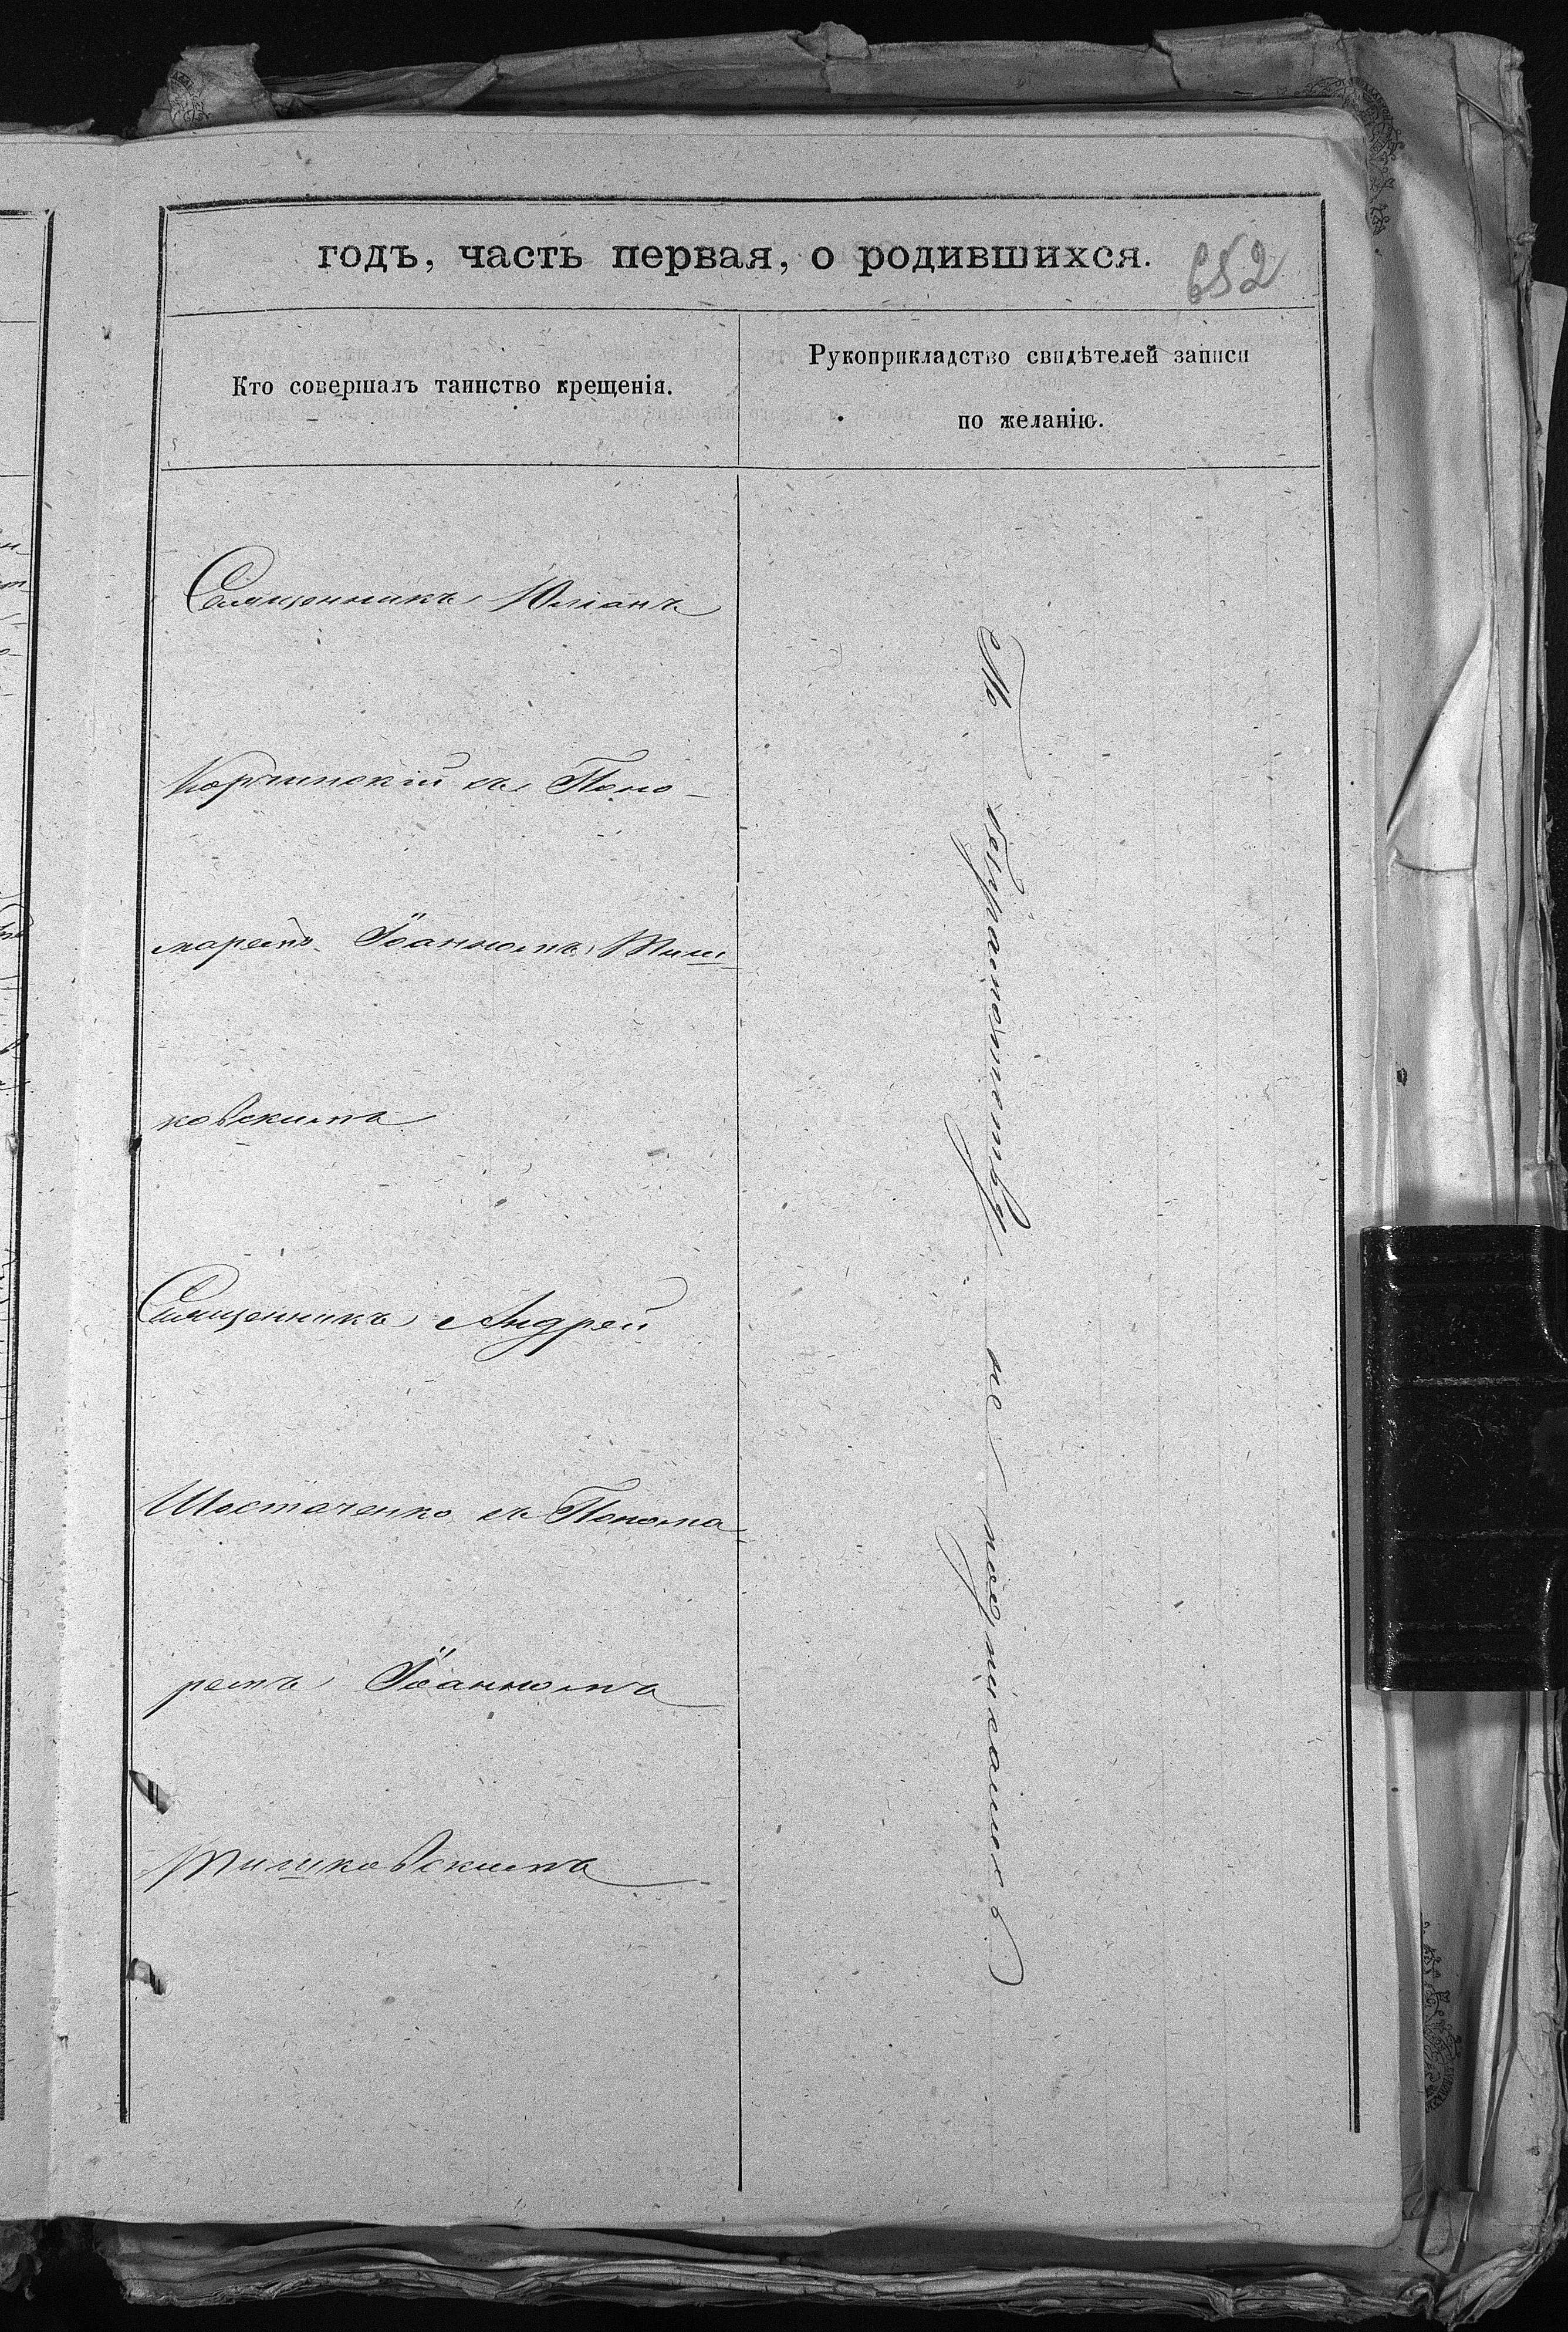 годъ, часть первая, о родившихся.
652
Кто совершалъ таинство крещенія.
Рукоприкладство свидѣтелей записи
по желанію.
Священникъ Юліанъ
Корчинскій съ Поно-
маремъ Іоанномъ Тиш-
ковскимъ
Священникъ Андрей
Шостаченко съ Понома
ремъ Іоанномъ
Тишковскимъ
безграмотству не подписались